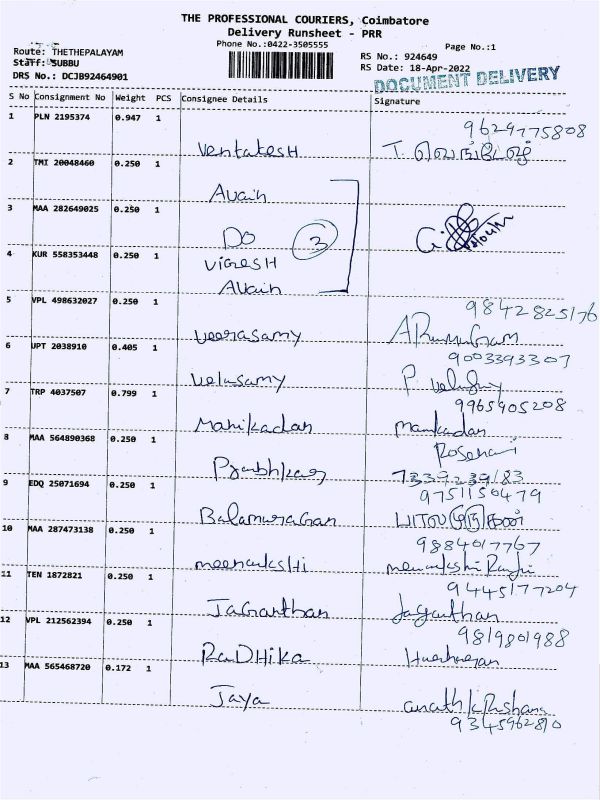 THE PROFESSIONAL COURIERS, Coimbatore
Delivery Runsheet - PRR
Phone No.:0422-3505555
Page No.:1
Route: THETHEPALAYAM
RS No.: 924649
Staff: SUBBU
RS Date: 18-Apr-2022
DRS No.: DCJB92464901
DOCUMENT DELIVERY
S No Consignment No Weight PCS Consignee Details Signature
1 PLN 2195374 0.947 1
9629775808
Ventatesh T.
2 TMI 20048460 0.250 1
Avain
3 MAA 282649025 0.250 1
Do 3
4 KUR 558353448 0.250 1
Vignesh
Avain
5 VPL 498632027 0.250 1
9842825176
Veerasamy ARumuGram
6 UPT 2038910 0.405 1
9003393307
Velusamy P
7 TRP 4037507 0.799 1
9965905208
Manikadan Manikadan
8 MAA 564890368 0.250 1
Rosehari
Prabhkar 7339239183
9 EDQ 25071694 0.250 1
9751150479
Balamuragan
10 MAA 287473138 0.250 1
9884017767
meenakshi
11 TEN 1872821 0.250 1
9445177204
Jaganthan Jaganthan
12 VPL 212562394 0.250 1
9819801988
RaDHika
13 MAA 565468720 0.172 1
Jaya
9345962810